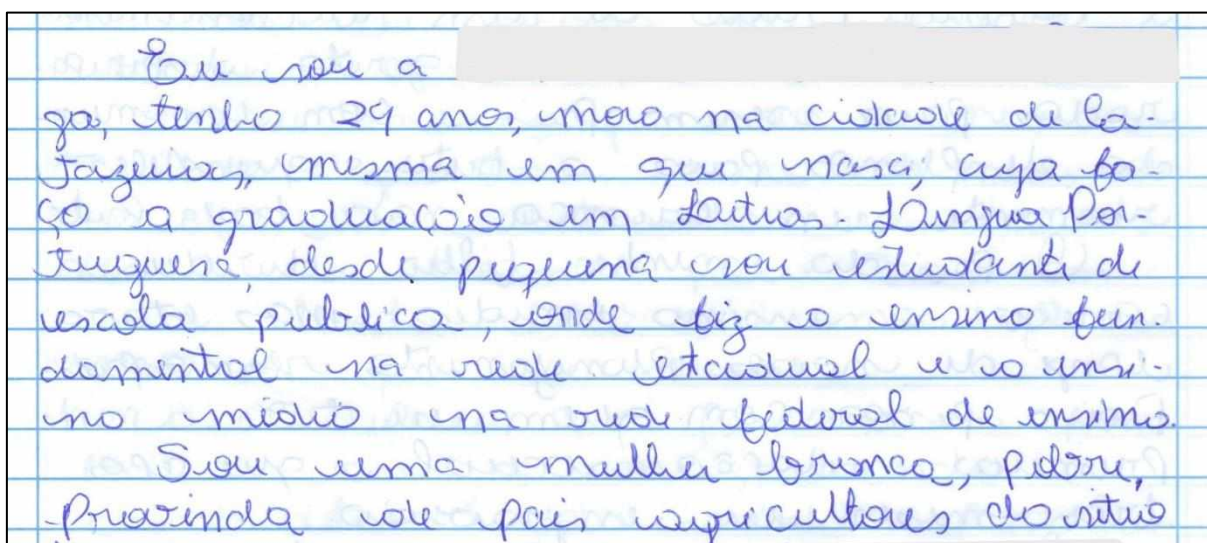 Eu sou a
ga, tenho 29 anos, moro na cidade de Ca-
jazeiras, mesma em que nasci, cuja fa-
ço a graduação em Letras - Língua Por-
tuguesa, desde pequena sou estudante de
escola pública, onde fiz o ensino fun-
damental na rede estadual e o ensi-
no médio na rede federal de ensino.
Sou uma mulher branca, pobre,
provinda de pais agricultores do sítio